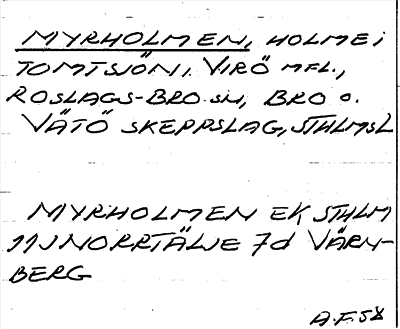 MYRHOLMEN, HOLME i
TOMTSJÖN, VIRÖ MFL.,
ROSLAGS-BRO SN, BRO O.
VÄTÖ SKEPPSLAG, STHLMSL
MYRHOLMEN EK, STHLM
11J NORRTÄLJE 7d VÄRN-
BERG
A.F.58